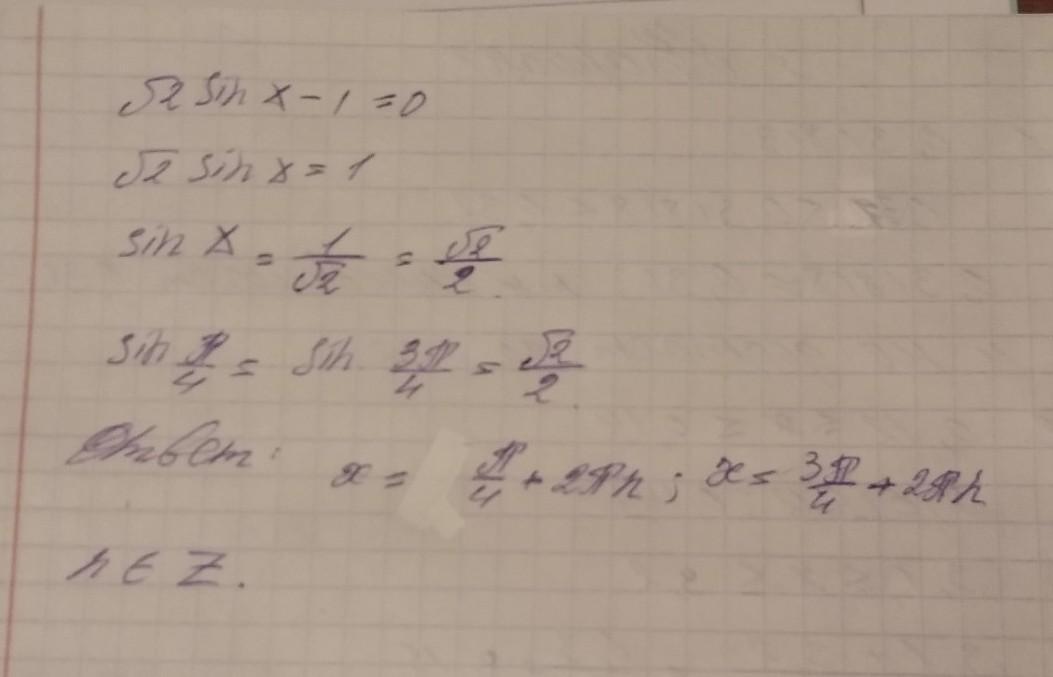 √2 sin x - 1 = 0
√2 sin x = 1
sin x = 1/√2 = √2/2.
sin π/4 = sin 3π/4 = √2/2.
Ответ: x = π/4 + 2πn; x = 3π/4 + 2πn
n ∈ Z.